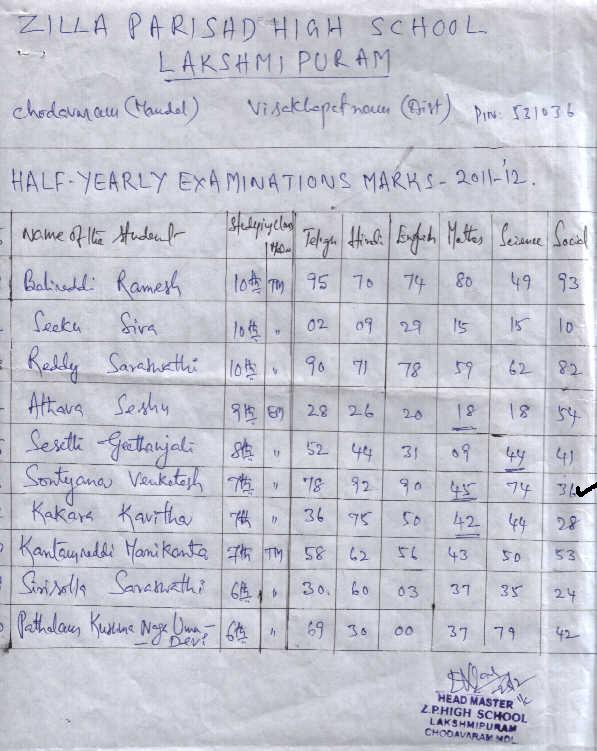 ZILLA PARISAD HIGH SCHOOL
LAKSHMIPURAM
Chodavaram (Mandal) Visakhapatnam (Dist) PIN: 531036
HALF-YEARLY EXAMINATIONS MARKS - 2011-'12.
Name of the Student Studying class Telugu Hindi English Maths Science Social
Balireddi Ramesh 10th TM 95 70 74 80 49 93
Seeku Siva 10th " 02 09 29 15 15 10
Reddy Saraswathi 10th " 90 71 78 59 62 82
Athava Seshu 9th EM 28 26 20 18 18 54
Sesetti Geethanjali 8th " 52 44 31 09 44 41
Sontyana Venkatesh 7th " 78 92 90 45 74 36
Kakara Kavitha 7th " 36 75 50 42 44 28
Kantamreddi Manikanta 7th TM 58 62 56 43 50 53
Sirisolla Saraswathi 6th " 30. 60 03 37 35 24
Pathalam Kusuma Naga Uma-
Devi 6th " 69 30 00 37 79 42
HEAD MASTER
Z.P.HIGH SCHOOL
LAKSHMIPURAM
CHODAVARAM MDL